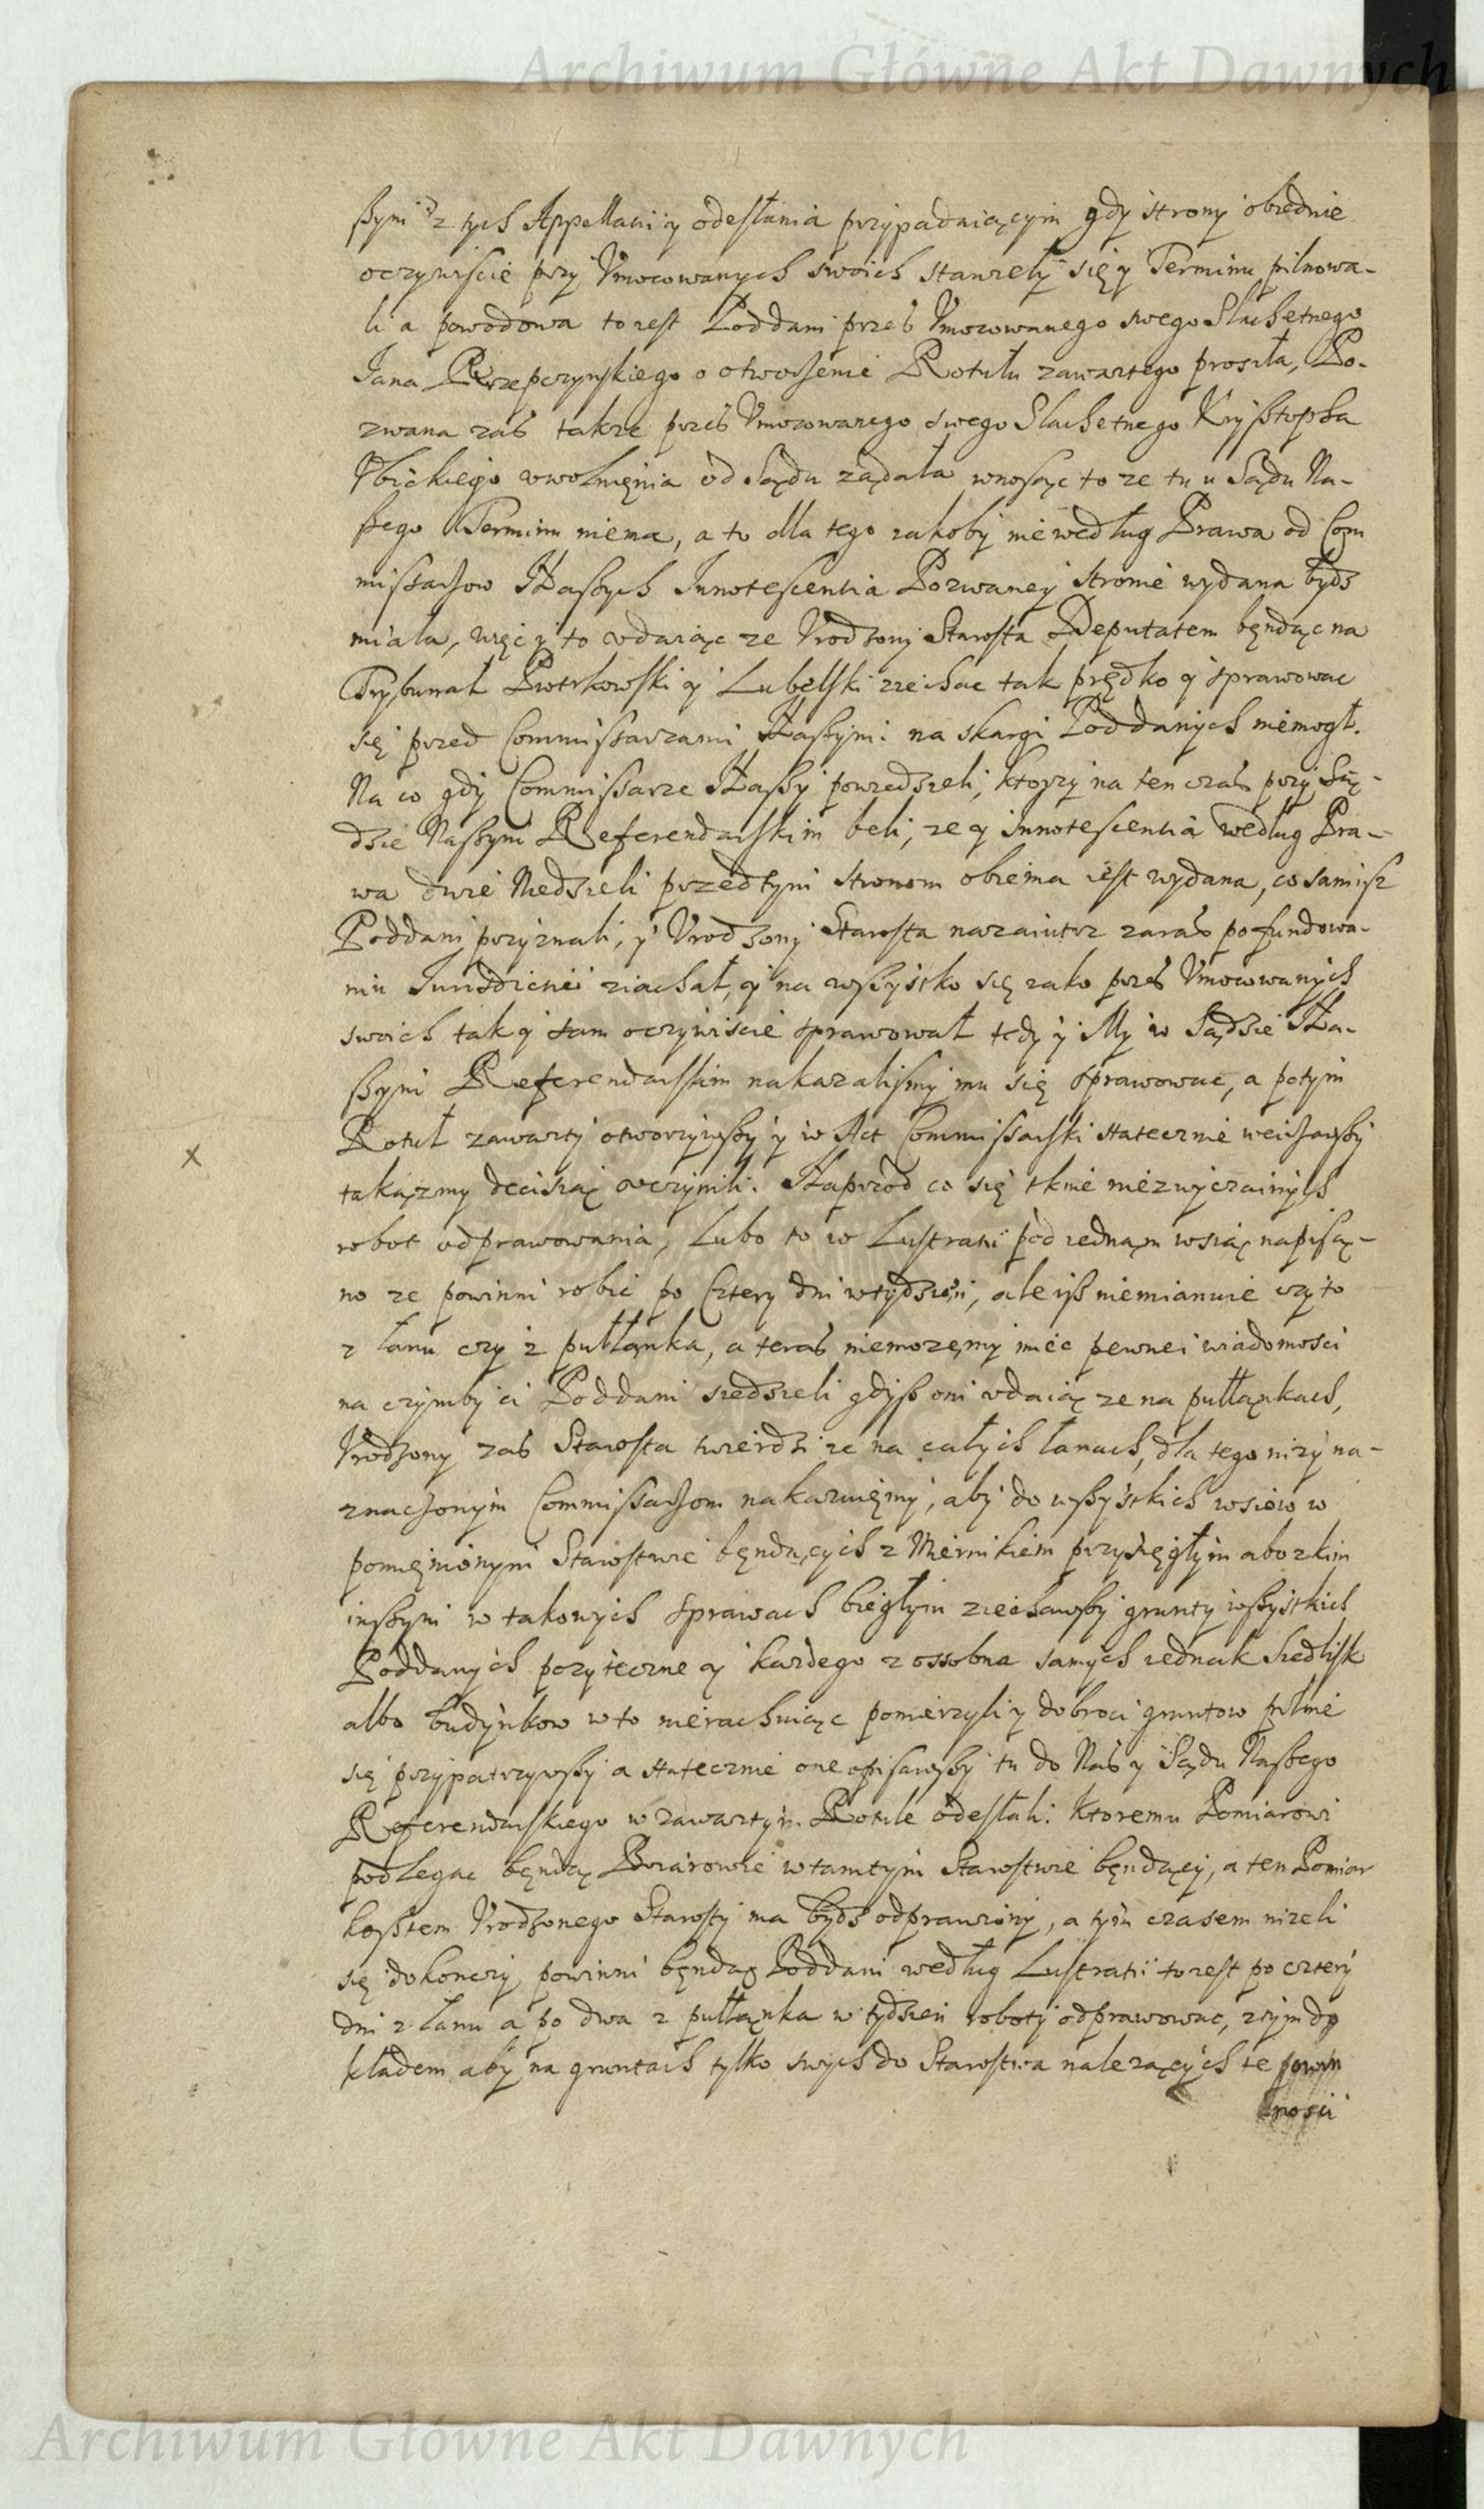 Archiwum Główne Akt Dawnych
ßym z tych Appellacii y odesłania przypadaiącym gdy strony obiednie
oczywiscie przy Vmocowanych swoich stanxeły się y Terminu pilnowa-
li a powodowa to iest Poddani przes Vmocowanego swego Slachetnego
Jana Rzepczynskiego o otworzenie Rotułu zawartego prosiła, Po-
zwana zas takze przes Vmocowanego swego Slachetnego Kryßtopha
Vbickiego vwolnięnia od Sądu ządała wnosząc to ze tu u Sądu Na-
ßego Terminu niema, a to dla tego iakoby niewedług Prawa od Com
missarzow Naßych Innotescentia Pozwaney stronie wydana bydz
miała, więc y to vdaiąc ze Vrodzony Starosta Deputatem będąc na
Trybunał Piotrkowski y Lubelski ziechac tak prędko y sprawowac
się przed Commissarzami Naßymi na skargi Poddanych niemogł.
Na co gdy Commissarze Naßy powiedzieli, ktorzy na ten czas przy Są-
dzie Naßym Referendarskim beli, ze y innotescentia według Pra-
wa dwie Niedzieli przedtym stronom obiema iest wydana, co sami sz
Poddani przyznali, y Vrodzony Starosta nazaiutrz zaras po fundowa-
niu Jurisdictiei ziachał, y na wßystko się iako przes Vmocowanych
swoich tak y sam oczywiscie sprawował tedy y My w Sądzie Na-
ßym Referendarskim nakazalismy mu się sprawowac, a potym
Rotuł zawarty otworzywßy y w Act Commissarski statecznie weirzawßy
takązmy decisią vczynili. Naprzod co się tknie niezwyczainych
robot odprawowania, Lubo to w Lustratii pod iednąm wsią napisą-
no ze powinni robic po Cztery dni w tydzień, ale iß niemianuie czy to
z łanu czy z pułłąnka, a teras niemozęmy miec pewnei wiadomosci
na czymby ci Poddani siedzieli gdyß oni vdaią ze na pułłąnkach,
Vrodzony zas Starosta twierdzi ze na całych łanach, dla tego nizy na-
znaczonym Commissarzom nakazuięmy, aby do wßystkich wsiow w
pomięnionym Starostwie będących z Miernikiem przysięgłym abo z kim
inßym w takowych sprawach biegłym ziechawßy grunty wßystkich
Poddanych pozyteczne y kazdego z ossobna samych iednak siedlisk
albo budynkow w to nierachuiąc pomierzyli y dobroci gruntow pilnie
się przypatrzywßy a statecznie one opisawßy tu do Nas y Sądu Naßego
Referendarskiego w zawartym Rotule odesłali. Ktoremu Pomiarowi
podlegac będą Bojarowie w tamtym Starostwie będący, a ten Pomiar
koßtem Vrodzonego Starosty ma bydz odprawiony, a tym czasem nizeli
się dokonczy powinni będą Poddani według Lustratii to iest po cztery
dni z łanu a po dwa z pułłąnka w tydzień roboty odprawowac, z tym do
kładem aby na gruntach tylko swych do Starostwa nalezących te powin
nosci
x
Archiwum Główne Akt Dawnych